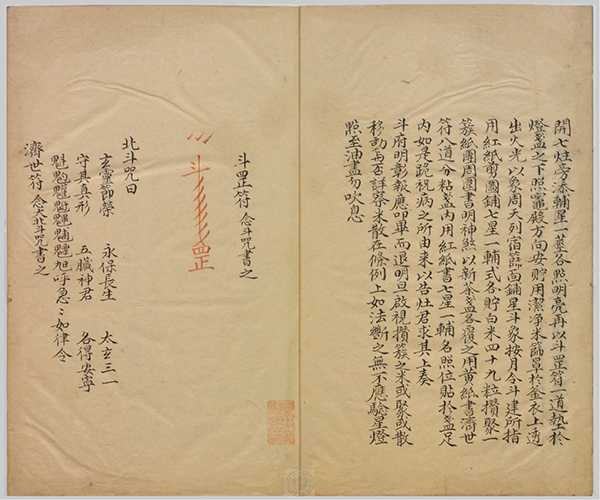 開七炷旁添輔星一莖各照明亮再以斗罡符一道墊於
燈盞之下照竈殿方向安貯用潔淨米篩罩於釜衣上透
出火光以象周天列宿篩面鋪星斗象按月令斗建所指
用紅紙剪圖鋪七星一輔式各貯白米四十九粒攢聚一
簇紙團周圍書明神煞以新茶盞各覆之用黃紙書濟世
符八道分粘盞內用紅紙書七星一輔名照位貼於盞足
內如是跪祝病之所由來以告灶君求其上奏
斗府明彰報應叩畢而退明旦啟視攢簇之米或聚或散
移動與否詳察米散在條例上如法斷之無不應驗星燈
點至油盡勿吹息
斗罡符 念斗咒書之
斗 罡
北斗咒曰
玄靈節榮 永保長生 太玄三一
守其真形 五臟神君 各得安寧
魁䰢䰣魓䰤䰥䰦旭呼急急如律令
濟世符 念大北斗咒書之